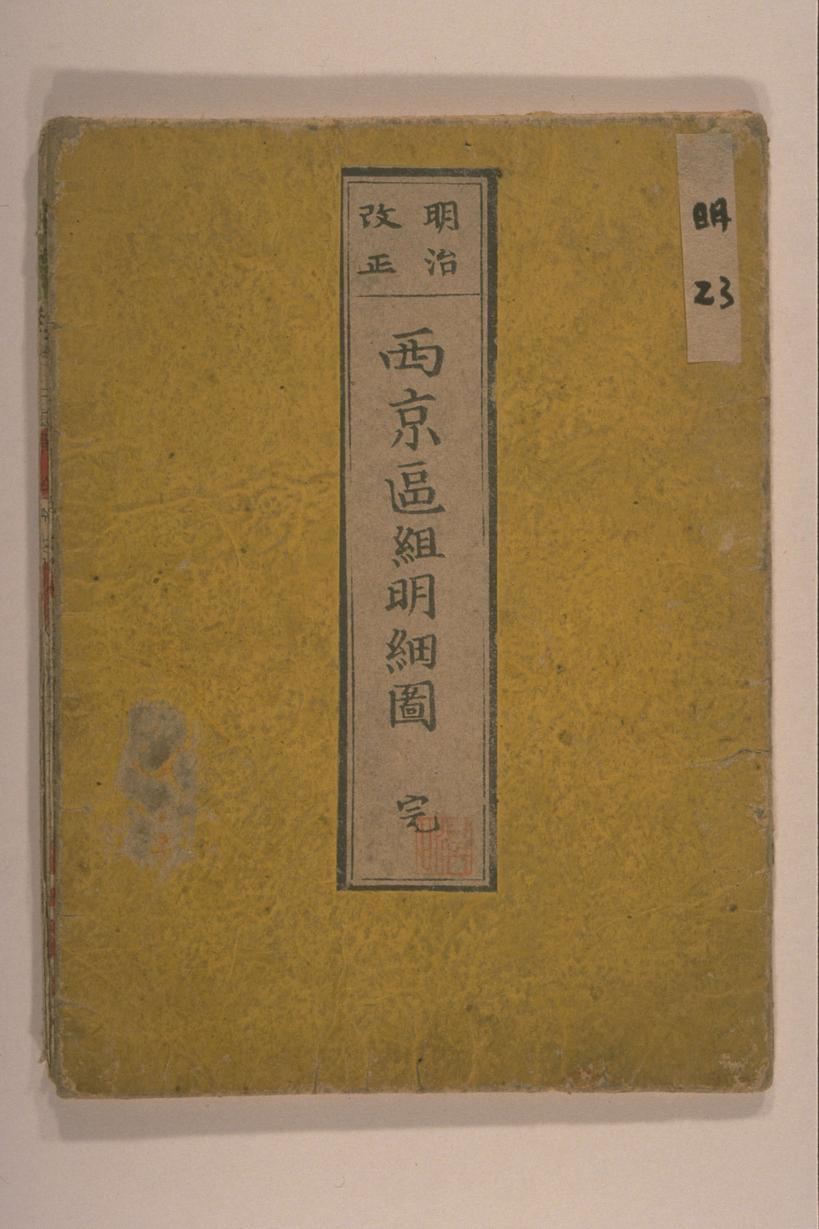 明治
改正
西京區組明細圖 完
明
23